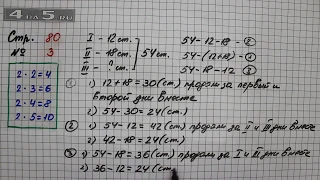 4 на 5.ru
Стр. 80
№ 3
2 · 2 = 4
2 · 3 = 6
2 · 4 = 8
2 · 5 = 10
I - 12 ст.
II - 18 ст.
III - ст.
54 ст.
54 - 12 - 18 - ②
54 - (12 + 18) - ①
54 - 18 - 12 ③
① 1) 12 + 18 = 30 (ст) продали за первый и
второй дни вместе
2) 54 - 30 = 24 (ст.)
② 1) 54 - 12 = 42 (ст) продали за II и III дни вместе
2) 42 - 18 = 24 (ст.)
③ 1) 54 - 18 = 36 (ст) продали за I и III дни вместе
2) 36 - 12 = 24 (ст